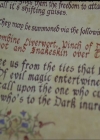 the freedom to att
all it's shifting guises.
They may be summoned via the followi
ombine Riverwort, Winch of
oot and Snakeskin over
ee us from the ties that
Of evil magic entertwine
Call upon the one who
who's to the Dark inure